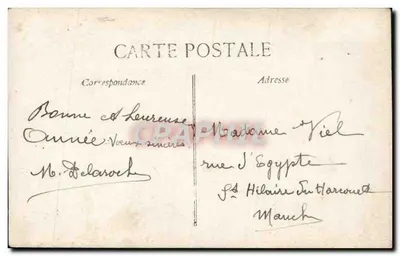 CARTE POSTALE
Correspondance
Adresse
Bonne et heureuse
Année Voeux sincères
M. Delaroche
Madame Viel
rue d'Egypte
St Hilaire du Harcouet
Manche